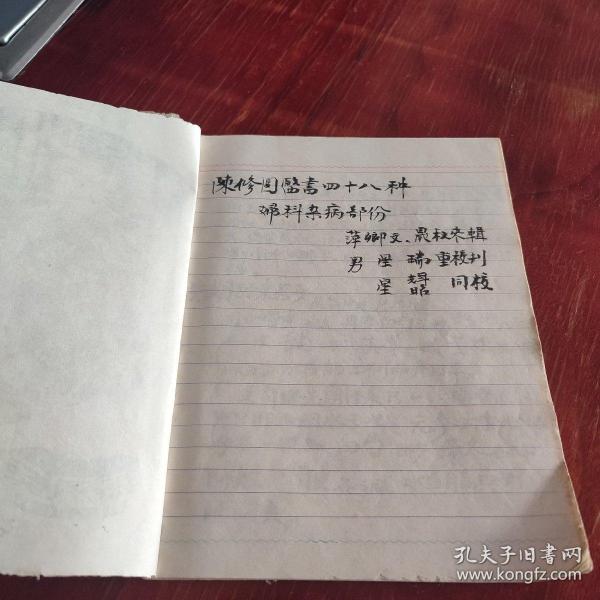 陳修园醫書四十八种
婦科杂病部份
萍鄉文、晟权来輯
男 星 瑞 重校刊
星 同校
孔夫子旧书网
www.kongfz.com